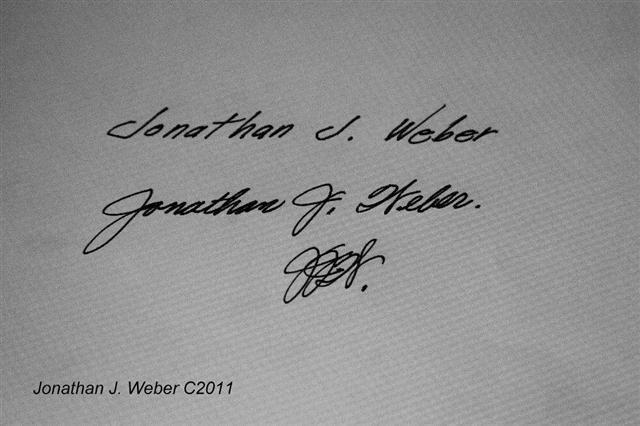 Jonathan J. Weber
Jonathan J. Weber.
JJW.
Jonathan J. Weber C2011